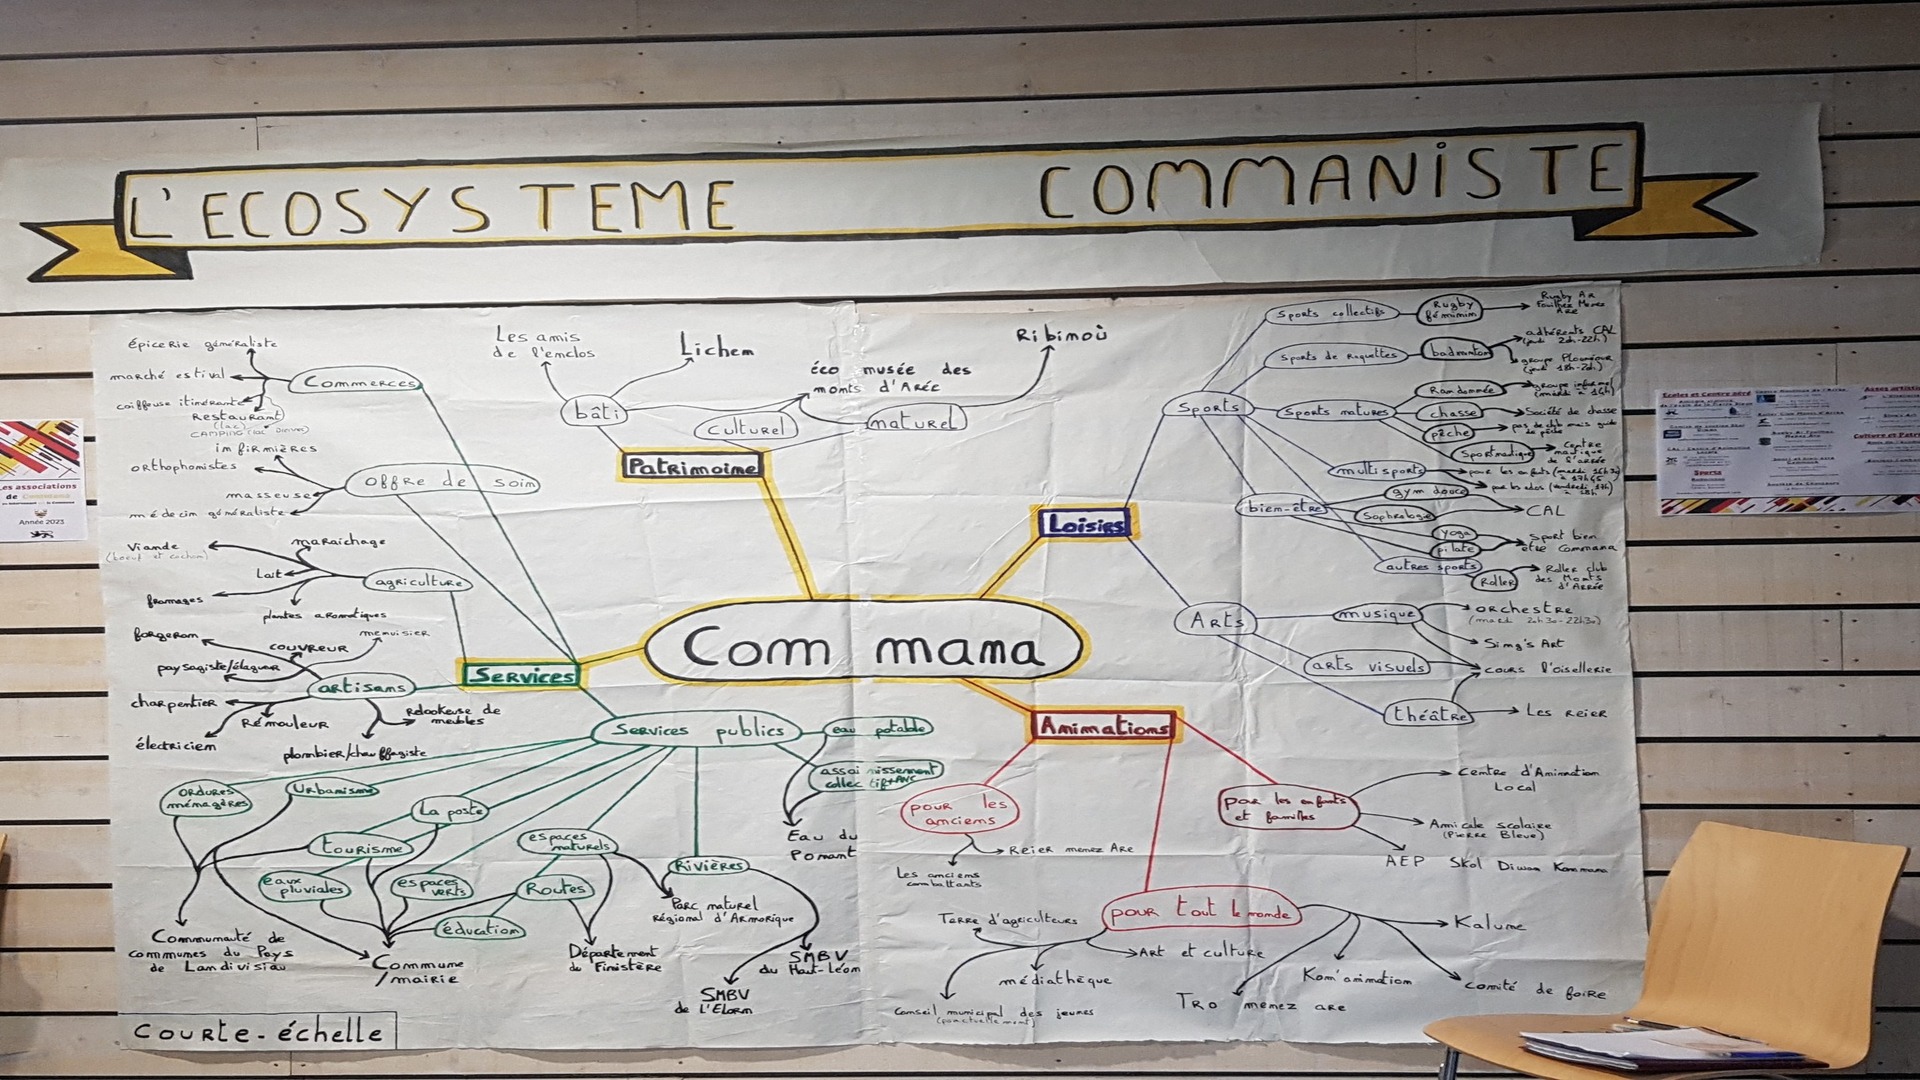 L'ECOSYSTEME COMMANISTE
épicerie généraliste
marché estival
coiffeuse itinérante
Restaurant
(lac)
CAMPING (lac Drennec)
Commerces
infirmières
orthophonistes
masseuse
médecin généraliste
offre de soin
Viande
(boeuf et cochon)
maraichage
Lait
fromages
plantes aromatiques
agriculture
forgeron
couvreur
menuisier
paysagiste/élagueur
charpentier
électricien
Rémouleur
plombier/chauffagiste
relookeuse de
meubles
artisans
Services
Les amis
de l'enclos
Lichen
éco musée des
monts d'Arée
Ribinoù
bâti
Culturel
naturel
Patrimoine
Com mana
Loisirs
Sports
Sports collectifs
Rugby
féminin
Rugby Ar
Fouilhez Menez
Are
Sports de raquettes
badminton
adhérents CAL
(jeudi 20h-22h)
groupe Plounéour
(jeudi 18h-20h)
Sports natures
Randonnée
groupe informel
(mardi à 14h)
chasse
Société de chasse
pêche
pas de club mais guide
de pêche
Sport nautique
Centre
nautique
de l'arrée
multisports
pour les enfants (mardi 16h30
à 17h45
pour les ados (vendredi 17h
à 18h
bien-être
gym douce
Sophrologie
CAL
yoga
pilate
Sport bien
être Commana
autres sports
Roller
Roller club
des Monts
d'Arrée
Arts
musique
orchestre
(mardi 20h30-22h30)
Sing's Art
arts visuels
cours l'oisellerie
théâtre
Les reier
Services publics
eau potable
assainissement
collectif+ANC
Eau du
Ponant
ordures
ménagères
Urbanisme
La poste
tourisme
espaces
naturels
Rivières
eaux
pluviales
espaces
verts
Routes
éducation
Communauté de
communes du Pays
de Landivisiau
Commune
/mairie
Département
du Finistère
Parc naturel
Régional d'Armorique
SMBV
du Haut-Léon
SMBV
de l'Elorn
Animations
pour les
anciens
Reier menez Are
Les anciens
combattants
pour les enfants
et familles
Centre d'Animation
Local
Amicale scolaire
(Pierre Bleue)
AEP Skol Diwan Kommana
pour tout le monde
Terre d'agriculteurs
Art et culture
médiathèque
Conseil municipal des jeunes
(ponctuellement)
Kalune
Kom'animation
Comité de foire
Tro menez are
COURTE-échelle
Les associations
de Commana
Année 2023
Sports